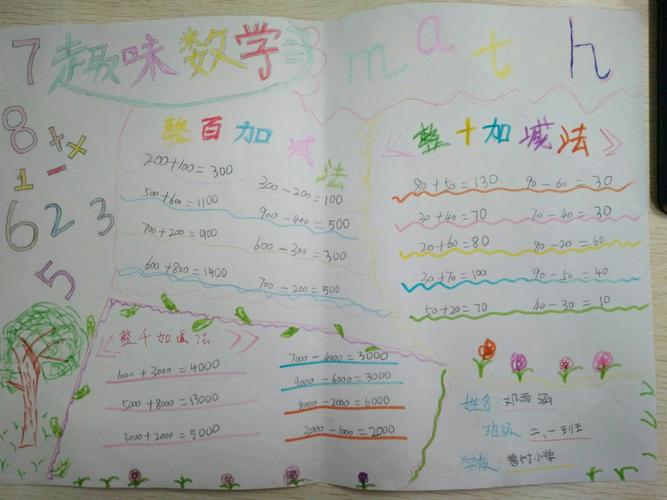 趣味数学
math
7
8
+ - ×
1
6 2 3
5
整百加减法
200+100=300
300-200=100
500+600=1100
900-400=500
700+200=900
600-300=300
600+800=1400
700-200=500
《整十加减法》
80+50=130
90-60=30
30+40=70
70-40=30
20+60=80
80-20=60
20+70=100
90-50=40
50+20=70
40-30=10
《整千加减法》
1000+3000=4000
7000-4000=3000
5000+8000=13000
9000-6000=3000
3000+2000=5000
8000-2000=6000
2000-1000=2000
姓名:邓 涵
班级:二、一班
学校:曹村小学